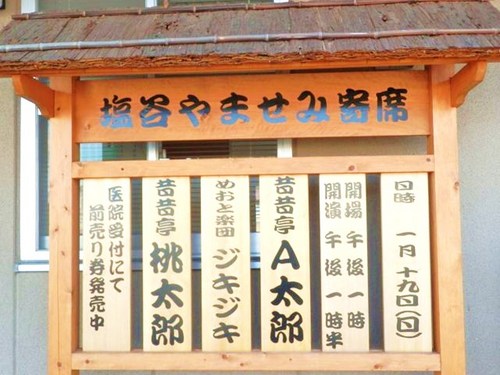 塩谷やませみ寄席
日時 一月十九日(日)
開場 午後一時
開演 午後一時半
昔昔亭 A太郎
めおと楽団 ジキジキ
昔昔亭 桃太郎
医院受付にて
前売り券発売中